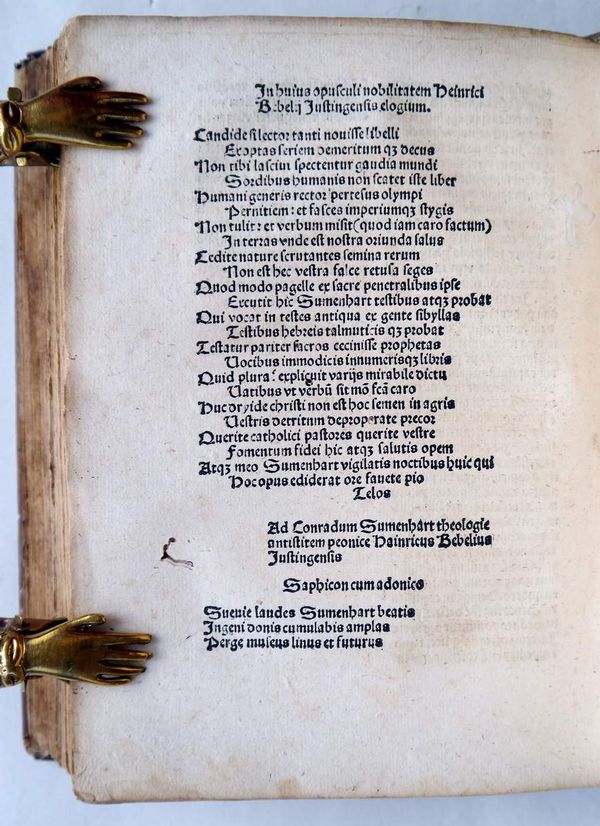 In huius opusculi nobilitatem Heinrici
Bebelij Justingensis elogium.
Candide si lector tanti nouisse libelli
Exoptas seriem demeritum qz decus
Non tibi lasciui spectentur gaudia mundi
Sordibus humanis non scatet iste liber
Humani generis rector pertesus olympi
Pernitiem: et fasces imperiumqz stygis
Non tulit: et verbum misit (quod iam caro factum)
In terras vnde est nostra oriunda salus
Cedite nature scrutantes semina rerum
Non est hec vestra falce retusa seges
Quod modo pagelle ex sacre penetralibus ipse
Excutit hic Sumenhart testibus atqz probat
Qui vocat in testes antiqua ex gente sibyllas
Testibus hebreis talmuticis qz probat
Testatur pariter sacros cecinisse prophetas
Uocibus immodicis innumerisqz libris
Quid plura? explicuit varijs mirabile dictu
Uatibus vt verbū sit mō fcā caro
Huc christi non est hoc semen in agris
Uestris detritum deproperate precor
Querite catholici pastores querite vestre
Fomentum fidei hic atqz salutis opem
Atqz meo Sumenhart vigilatis noctibus huic qui
Hoc opus ediderat ore fauete pio
Telos
Ad Conradum Sumenhart theologie
antistitem peonice Hainricus Bebelius
Justingensis
Saphicon cum adonico
Sueuie laudes Sumenhart beatis
Ingeni donis cumulabis amplas
Perge museus linus et futurus